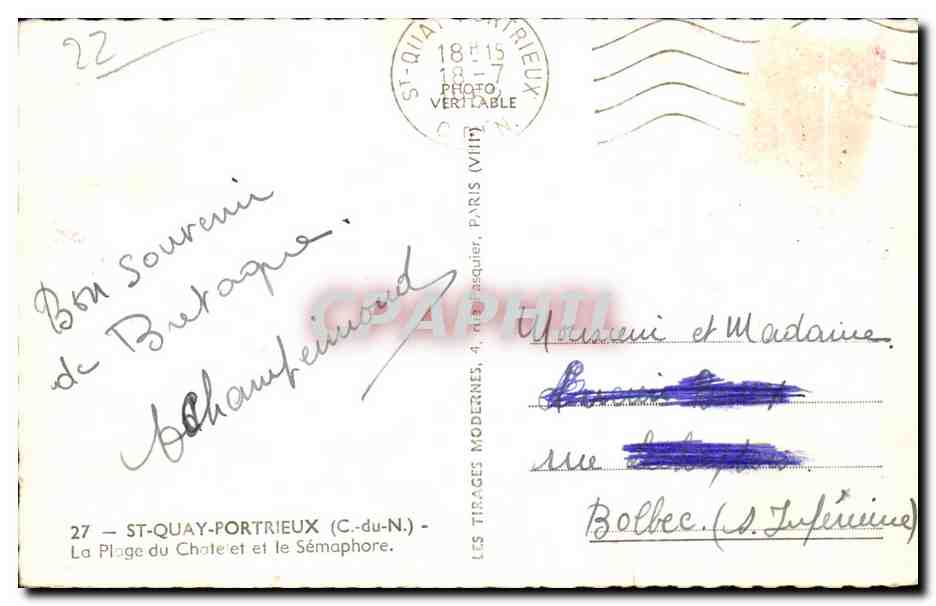 22
ST-QUAY-PORTRIEUX
18 H 15
18 - 7
C. DU N.
PHOTO
VERITABLE
Bon Souvenir
de Bretagne.
LES TIRAGES MODERNES, 4, rue Pasquier, PARIS (VIIIe)
CPAPHIL
Monsieur et Madame.
rue
Bolbec. (S. Inférieure)
27 — ST-QUAY-PORTRIEUX (C.-du-N.) -
La Plage du Chatelet et le Sémaphore.